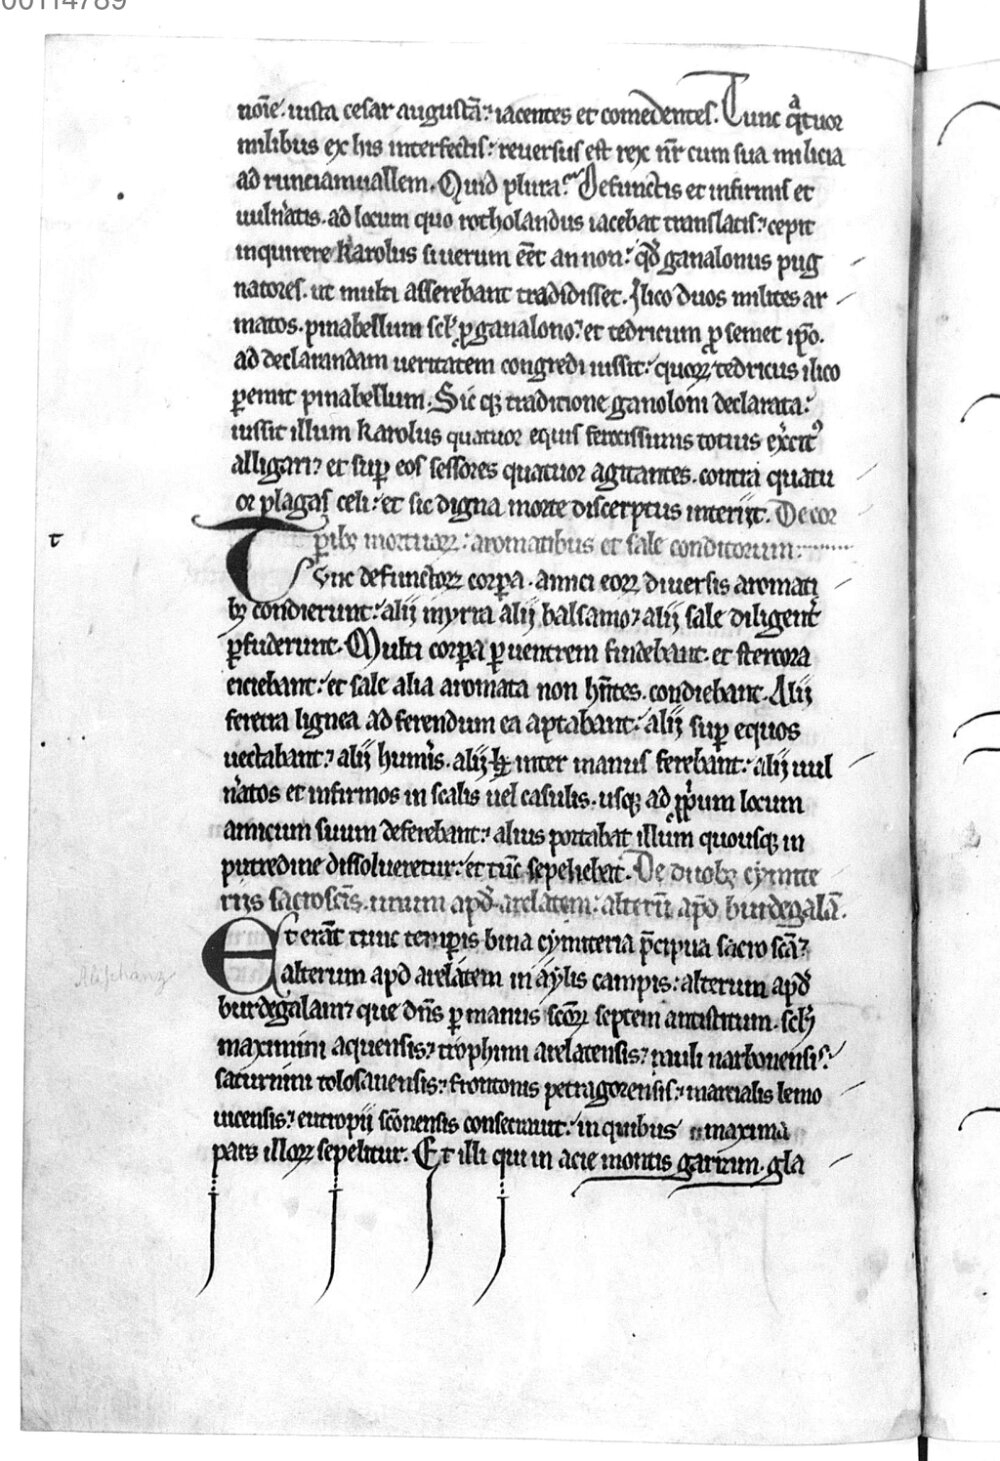 00114789
noīe. iuxta cesar augustā: iacentes et comedentes. Tunc qͣtuor
milibus ex his interfectis: reversus est rex nr̄ cum sua milicia
ad runciamuallem. Quid plura? Defunctis et infirmis et
uuln̄atis. ad locum quo rotholandus iacebat translatis: cepit
inquirere Karolus si uerum eēt an non: qd̄ ganalonus pug
natores. ut multi asserebant tradidisset. Ilico duos milites ar
matos. pinabellum scł. ꝓ ganalono: et tedricum ꝓ semet ip̄o.
ad declarandam ueritatem congredi iussit: quoꝝ tedricus ilico
ꝑemit pinabellum. Sic qꝫ traditione ganoloni declarata:
iussit illum Karolus quatuor equis ferocissimis totius exc̄itꝰ
alligari: et suꝑ eos sessores quatuor agitantes. contra quatu
or plagas celi: et sic digna morte discerptus interijt. De cor
ꝑibꝫ mortuoꝝ: aromatibus et sale conditorum:
Tunc defunctoꝝ corꝑa. amici eoꝝ diuersis aromati
bꝫ condierunt: alij myrra alij balsamo: alij sale diligent̄
ꝑfuderunt. Multi corꝑa ꝑ uentrem findebant. et stercora
eiciebant: et sale alia aromata non hn̄tes. condiebant. Alij
feretra lignea ad ferendum ea aptabant: alij suꝑ equos
uectabant: alij hum̄is. alij inter manus ferebant: alij uul
n̄atos et infirmos in scalis uel casulis. usqꝫ ad ꝓp̄ium locum
amicum suum deferebant: alius portabat illum quousqꝫ in
putredine dissolueretur: et tūc sepeliebat. De duobꝫ cymite
rijs sacrosc̄is. unum apd̄ arelatem: alterū apd̄ burdegalā.
Et erāt tunc temꝑis bina cymiteria p̄cipua sacro sc̄ā:
alterum apd̄ arelatem in aylis campis: alterum apd̄
burdegalam: que dn̄s ꝑ manus sc̄oꝝ septem antistitum. scł.
maximini aquensis: trophimi arelatensis: pauli narbonensis:
saturnini tolosanensis: frontonis petragorensis: martialis lemo
uicensis: eutropij sc̄onensis consecrauit: in quibus maxima
pars illoꝝ sepelitur. Et illi qui in acie montis garzim. gla